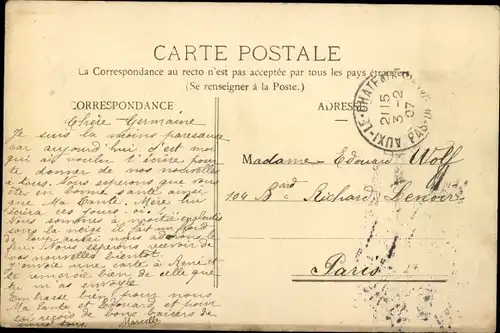 CARTE POSTALE
La Correspondance au recto n'est pas acceptée par tous les pays étrangers,
(Se renseigner à la Poste.)
CORRESPONDANCE
ADRESSE
AUXI-LE-CHATEAU
21 15
3-2
07
PAS-DE
Chère Germaine
Je suis la moins paresseuse
car aujourd'hui c'est moi
qui as vouler t'écrire pour
te donner de nos nouvelles
à tous. Nous espérons que vous
êtes en bonne santé ainsi
que Ma Tante. Mère lui
écrira ces jours-ci.
Nous sommes à moitié
sous la neige il fait un froid
de loup autrement nous adorons le
feu. Nous espérons recevoir de
vos nouvelles bientôt.
J'envoie une carte à René et
te remercie bien de celle que
tu m'as envoyée
Embrasse bien pour nous
Ma tante et Edouard et pour
toi reçois de bons baisers de
nous tous. Marcelle
Madame Edouard Wolf
104 Bard Richard Lenoir
Paris